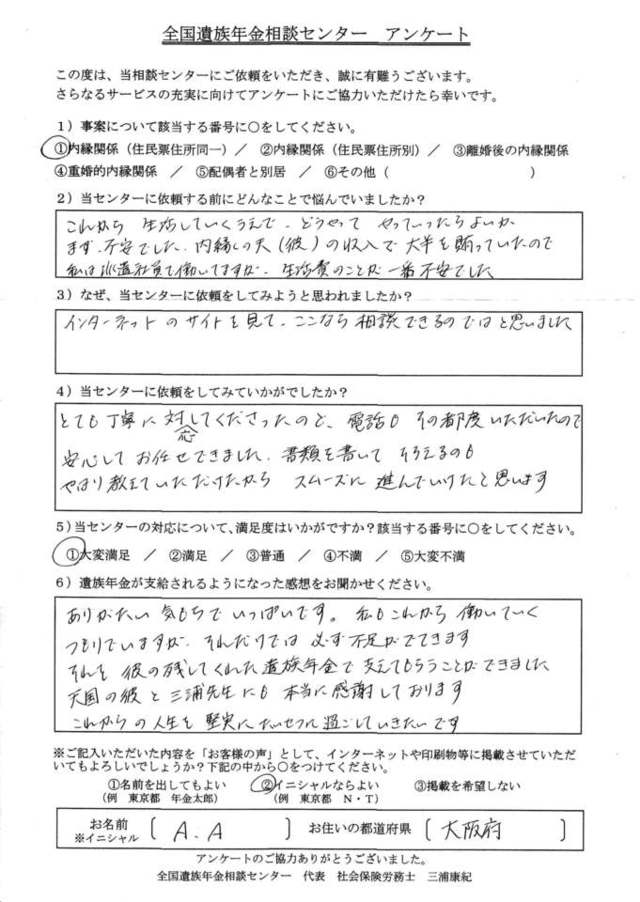 全国遺族年金相談センター　アンケート
この度は、当相談センターにご依頼をいただき、誠に有難うございます。
さらなるサービスの充実に向けてアンケートにご協力いただけたら幸いです。
1）事案について該当する番号に○をしてください。
①内縁関係（住民票住所同一）／　②内縁関係（住民票住所別）／　③離婚後の内縁関係
④重婚的内縁関係　／　⑤配偶者と別居　／　⑥その他（　　　　　　　　　　）
2）当センターに依頼する前にどんなことで悩んでいましたか？
これから　生活していくうえで、どうやって　やっていったらよいか
まず　不安でした。内縁の夫（彼）の収入で　大半を賄っていたので
私は派遣社員で働いてますが、生活費のことが　一番　不安でした
3）なぜ、当センターに依頼をしてみようと思われましたか？
インターネットのサイトを見て、ここなら　相談できるのではと思いました
4）当センターに依頼をしてみていかがでしたか？
とても丁寧に　対応してくださったので、電話も　その都度いただいたので
安心して　お任せできました。書類を書いて　そろえるのも
やはり教えていただけたから　スムーズに　進んでいけたと思います
5）当センターの対応について、満足度はいかがですか？該当する番号に○をしてください。
①大変満足　／　②満足　／　③普通　／　④不満　／　⑤大変不満
6）遺族年金が支給されるようになった感想をお聞かせください。
ありがたい　気もちで　いっぱいです。私もこれから　働いていく
つもりでいますが、それだけでは　必ず　不足がでてきます
それを　彼の残してくれた遺族年金で　支えてもらうことができました
天国の彼と　三浦先生にも　本当に　感謝しております
これからの人生を　堅実に　たいせつに　過ごしていきたいです
※ご記入いただいた内容を「お客様の声」として、インターネットや印刷物等に掲載させていただ
いてもよろしいでしょうか？下記の中から○をつけてください。
①名前を出してもよい　②イニシャルならよい　③掲載を希望しない
（例　東京都　年金太郎）　（例　東京都　N・T）
お名前　〔　A.A　〕　お住いの都道府県　〔　大阪府　〕
※イニシャル
アンケートのご協力ありがとうございました。
全国遺族年金相談センター　代表　社会保険労務士　三浦康紀